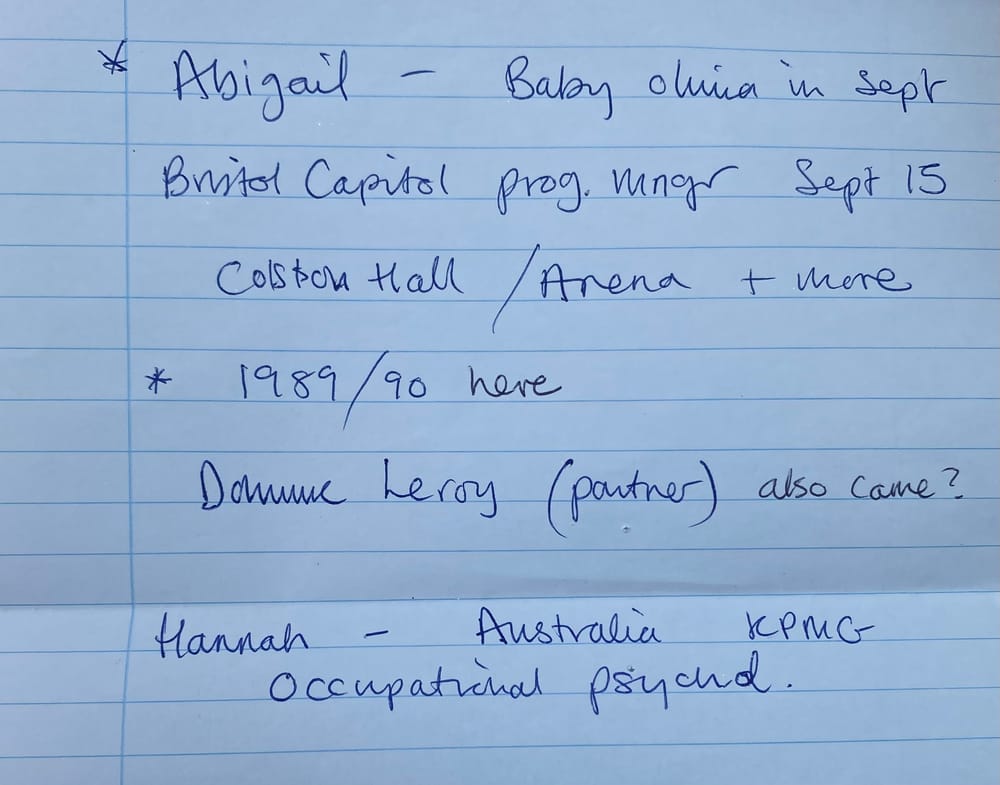 * Abigail - Baby Olivia in Sept
Bristol Capitol prog. mngr Sept 15
Colston Hall / Arena + more
* 1989/90 here
Leroy (partner) also came?
Hannah - Australia KPMG
Occupational psychol.